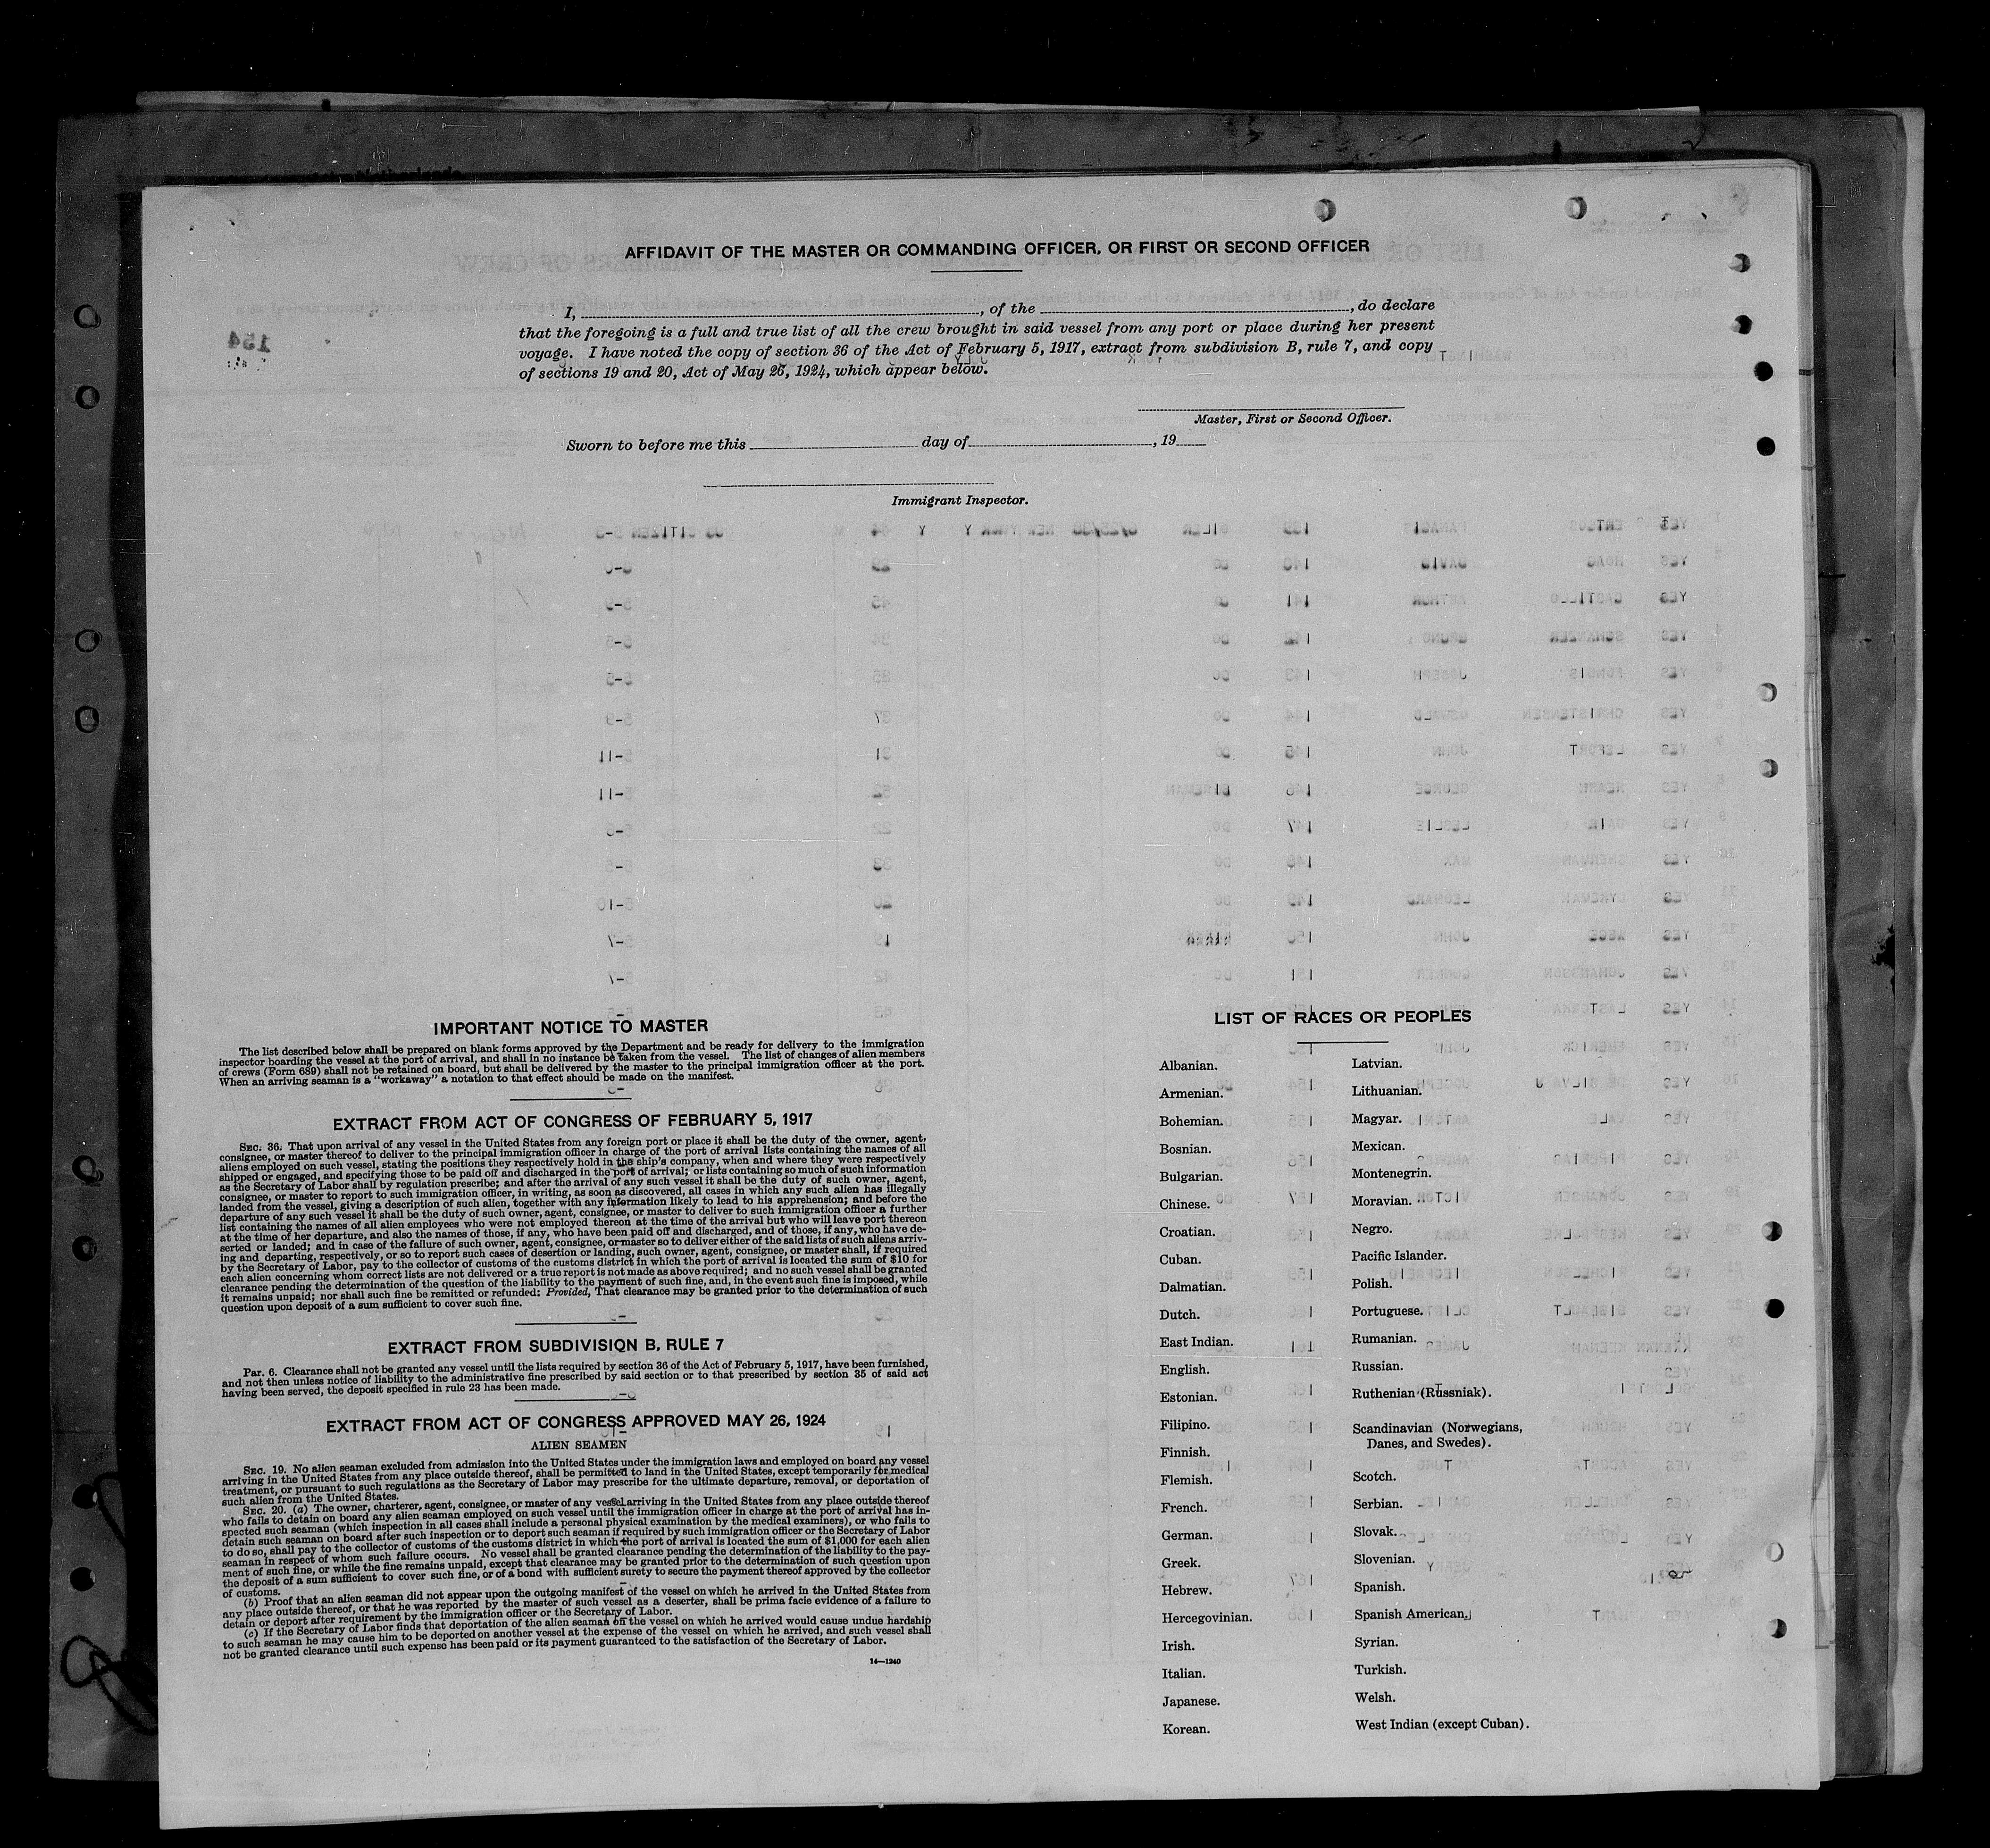 AFFIDAVIT OF THE MASTER OR COMMANDING OFFICER, OR FIRST OR SECOND OFFICER
I, , of the , do declare
that the foregoing is a full and true list of all the crew brought in said vessel from any port or place during her present
voyage. I have noted the copy of section 36 of the Act of February 5, 1917, extract from subdivision B, rule 7, and copy
of sections 19 and 20, Act of May 26, 1924, which appear below.
Master, First or Second Officer.
Sworn to before me this day of , 19
Immigrant Inspector.
IMPORTANT NOTICE TO MASTER
The list described below shall be prepared on blank forms approved by the Department and be ready for delivery to the immigration
inspector boarding the vessel at the port of arrival, and shall in no instance be taken from the vessel. The list of changes of alien members
of crews (Form 689) shall not be retained on board, but shall be delivered by the master to the principal immigration officer at the port.
When an arriving seaman is a "workaway" a notation to that effect should be made on the manifest.
EXTRACT FROM ACT OF CONGRESS OF FEBRUARY 5, 1917
SEC. 36. That upon arrival of any vessel in the United States from any foreign port or place it shall be the duty of the owner, agent,
consignee, or master thereof to deliver to the principal immigration officer in charge of the port of arrival lists containing the names of all
aliens employed on such vessel, stating the positions they respectively hold in the ship's company, when and where they were respectively
shipped or engaged, and specifying those to be paid off and discharged in the port of arrival; or lists containing so much of such information
as the Secretary of Labor shall by regulation prescribe; and after the arrival of any such vessel it shall be the duty of such owner, agent,
consignee, or master to report to such immigration officer, in writing, as soon as discovered, all cases in which any such alien has illegally
landed from the vessel, giving a description of such alien, together with any information likely to lead to his apprehension; and before the
departure of any such vessel it shall be the duty of such owner, agent, consignee, or master to deliver to such immigration officer a further
list containing the names of all alien employees who were not employed thereon at the time of the arrival but who will leave port thereon
at the time of her departure, and also the names of those, if any, who have been paid off and discharged, and of those, if any, who have de-
serted or landed; and in case of the failure of such owner, agent, consignee, or master so to deliver either of the said lists of such aliens arriv-
ing and departing, respectively, or so to report such cases of desertion or landing, such owner, agent, consignee, or master shall, if required
by the Secretary of Labor, pay to the collector of customs of the customs district in which the port of arrival is located the sum of $10 for
each alien concerning whom correct lists are not delivered or a true report is not made as above required; and no such vessel shall be granted
clearance pending the determination of the question of the liability to the payment of such fine, and, in the event such fine is imposed, while
it remains unpaid; nor shall such fine be remitted or refunded: Provided, That clearance may be granted prior to the determination of such
question upon deposit of a sum sufficient to cover such fine.
EXTRACT FROM SUBDIVISION B, RULE 7
Par. 6. Clearance shall not be granted any vessel until the lists required by section 36 of the Act of February 5, 1917, have been furnished,
and not then unless notice of liability to the administrative fine prescribed by said section or to that prescribed by section 35 of said act
having been served, the deposit specified in rule 23 has been made.
EXTRACT FROM ACT OF CONGRESS APPROVED MAY 26, 1924
ALIEN SEAMEN
SEC. 19. No alien seaman excluded from admission into the United States under the immigration laws and employed on board any vessel
arriving in the United States from any place outside thereof, shall be permitted to land in the United States, except temporarily for medical
treatment, or pursuant to such regulations as the Secretary of Labor may prescribe for the ultimate departure, removal, or deportation of
such alien from the United States.
SEC. 20. (a) The owner, charterer, agent, consignee, or master of any vessel arriving in the United States from any place outside thereof
who fails to detain on board any alien seaman employed on such vessel until the immigration officer in charge at the port of arrival has in-
spected such seaman (which inspection in all cases shall include a personal physical examination by the medical examiners), or who fails to
detain such seaman on board after such inspection or to deport such seaman if required by such immigration officer or the Secretary of Labor
to do so, shall pay to the collector of customs of the customs district in which the port of arrival is located the sum of $1,000 for each alien
seaman in respect of whom such failure occurs. No vessel shall be granted clearance pending the determination of the liability to the pay-
ment of such fine, or while the fine remains unpaid, except that clearance may be granted prior to the determination of such question upon
the deposit of a sum sufficient to cover such fine, or of a bond with sufficient surety to secure the payment thereof approved by the collector
of customs.
(b) Proof that an alien seaman did not appear upon the outgoing manifest of the vessel on which he arrived in the United States from
any place outside thereof, or that he was reported by the master of such vessel as a deserter, shall be prima facie evidence of a failure to
detain or deport after requirement by the immigration officer or the Secretary of Labor.
(c) If the Secretary of Labor finds that deportation of the alien seaman off the vessel on which he arrived would cause undue hardship
to such seaman he may cause him to be deported on another vessel at the expense of the vessel on which he arrived, and such vessel shall
not be granted clearance until such expense has been paid or its payment guaranteed to the satisfaction of the Secretary of Labor.
14—1240
LIST OF RACES OR PEOPLES
Albanian.
Armenian.
Bohemian.
Bosnian.
Bulgarian.
Chinese.
Croatian.
Cuban.
Dalmatian.
Dutch.
East Indian.
English.
Estonian.
Filipino.
Finnish.
Flemish.
French.
German.
Greek.
Hebrew.
Hercegovinian.
Irish.
Italian.
Japanese.
Korean.
Latvian.
Lithuanian.
Magyar.
Mexican.
Montenegrin.
Moravian.
Negro.
Pacific Islander.
Polish.
Portuguese.
Rumanian.
Russian.
Ruthenian (Russniak).
Scandinavian (Norwegians,
Danes, and Swedes).
Scotch.
Serbian.
Slovak.
Slovenian.
Spanish.
Spanish American.
Syrian.
Turkish.
Welsh.
West Indian (except Cuban).